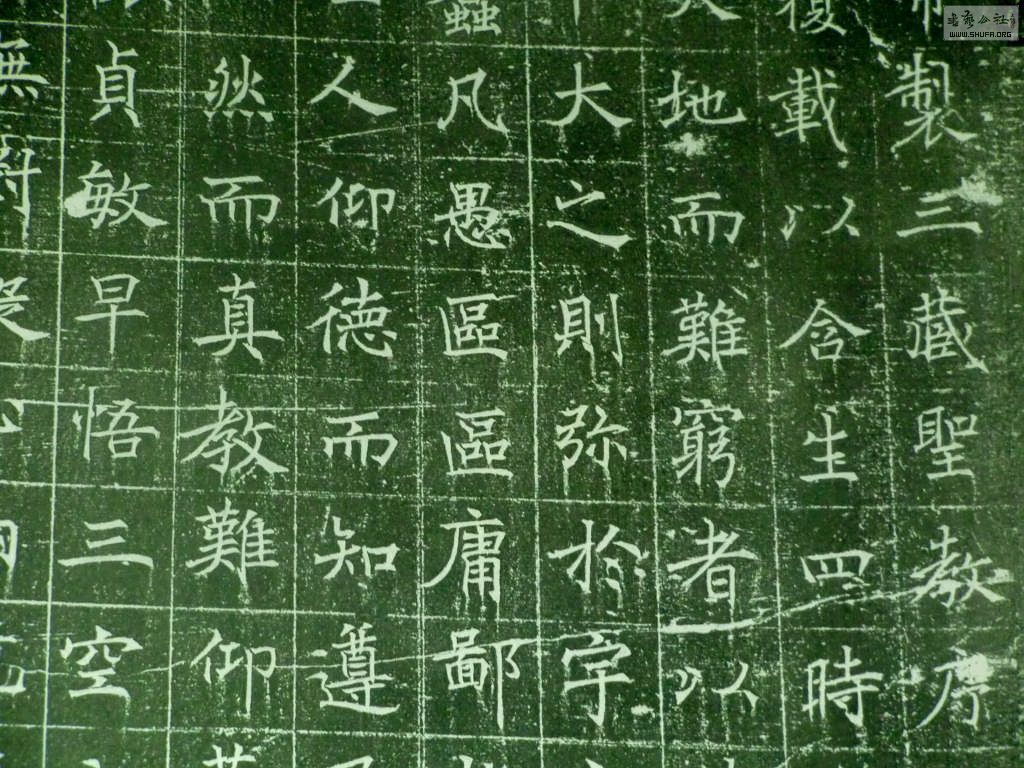 製三藏聖教序
載以含生四時
地而難窮者以
大之則弥於宇
蟲凡愚區區庸鄙
人仰德而知遵
然而真教難仰
貞敏早悟三空
無
書藝公社
WWW.SHUFA.ORG